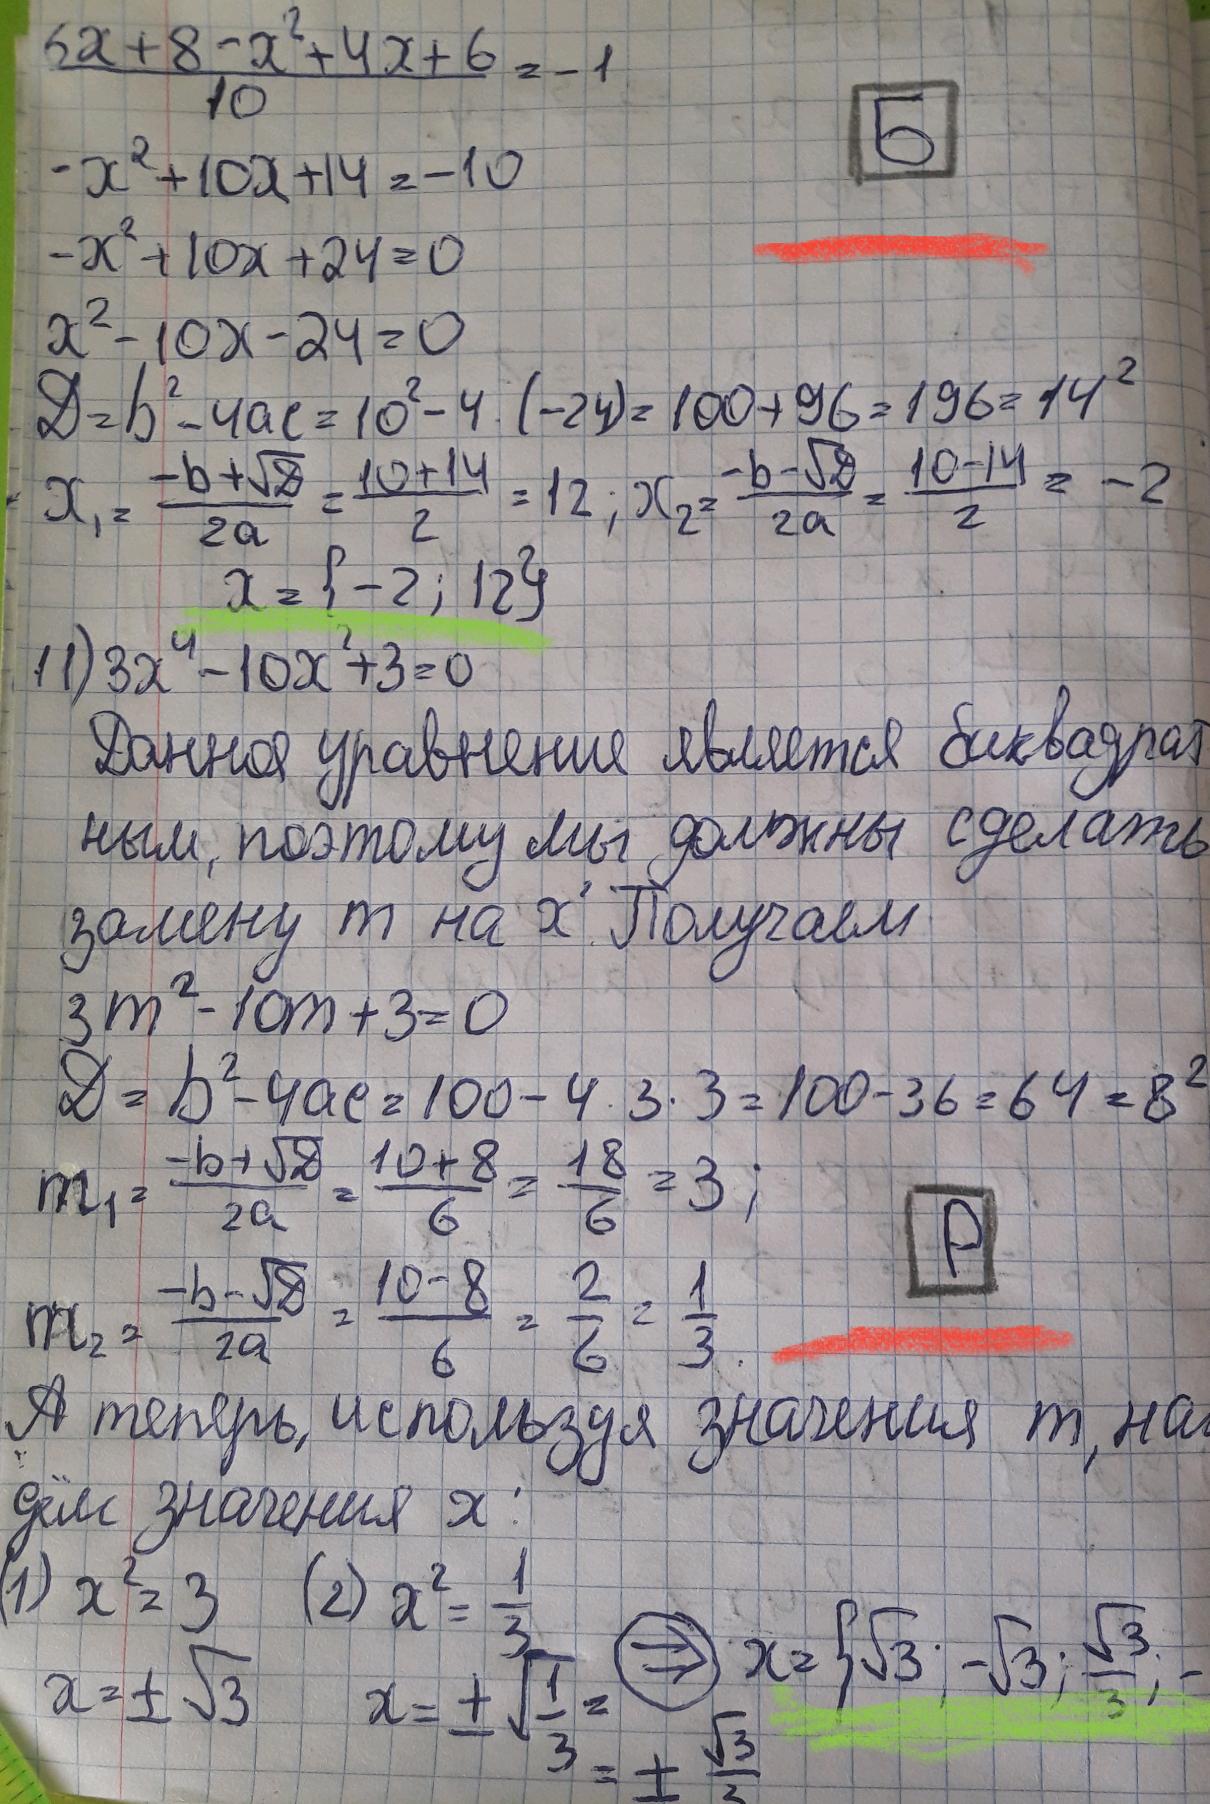 6x+8-x²+4x+6/10 = -1
Б
-x²+10x+14=-10
-x²+10x+24=0
x²-10x-24=0
D=b²-4ac=10²-4·(-24)=100+96=196=14²
x₁=(-b+√D)/2a=(10+14)/2=12; x₂=(-b-√D)/2a=(10-14)/2=-2
x={-2; 12}
11) 3x⁴-10x²+3=0
Данное уравнение является биквадрат
ным, поэтому мы должны сделать
замену m на x². Получаем
3m²-10m+3=0
D=b²-4ac=100-4·3·3=100-36=64=8²
m₁=(-b+√D)/2a=(10+8)/6=18/6=3;
Р
m₂=(-b-√D)/2a=(10-8)/6=2/6=1/3.
А теперь, используя значения m, най
дём значения x:
(1) x²=3 (2) x²=1/3
x=±√3 x=±√(1/3)= ⇒ x={√3; -√3; √3/3; -
=±√3/3